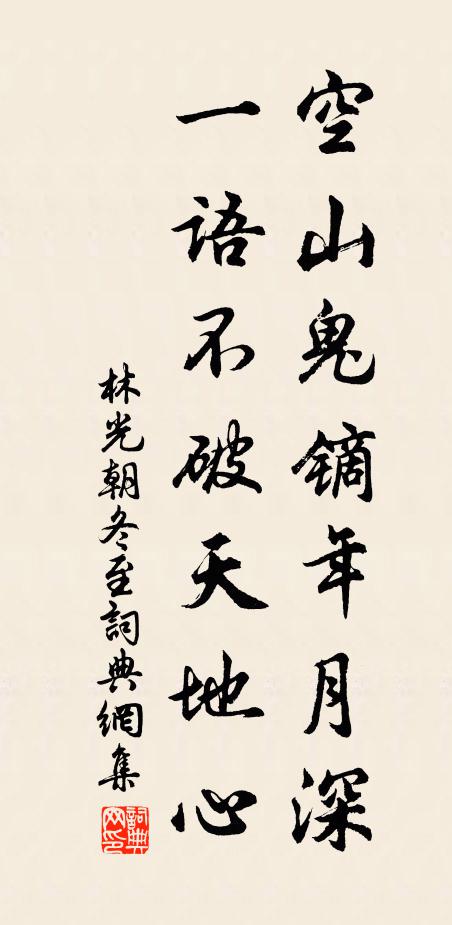 空山鬼鏑年月深
一語不破天地心
林光朝冬至詞典網集
詞典網印